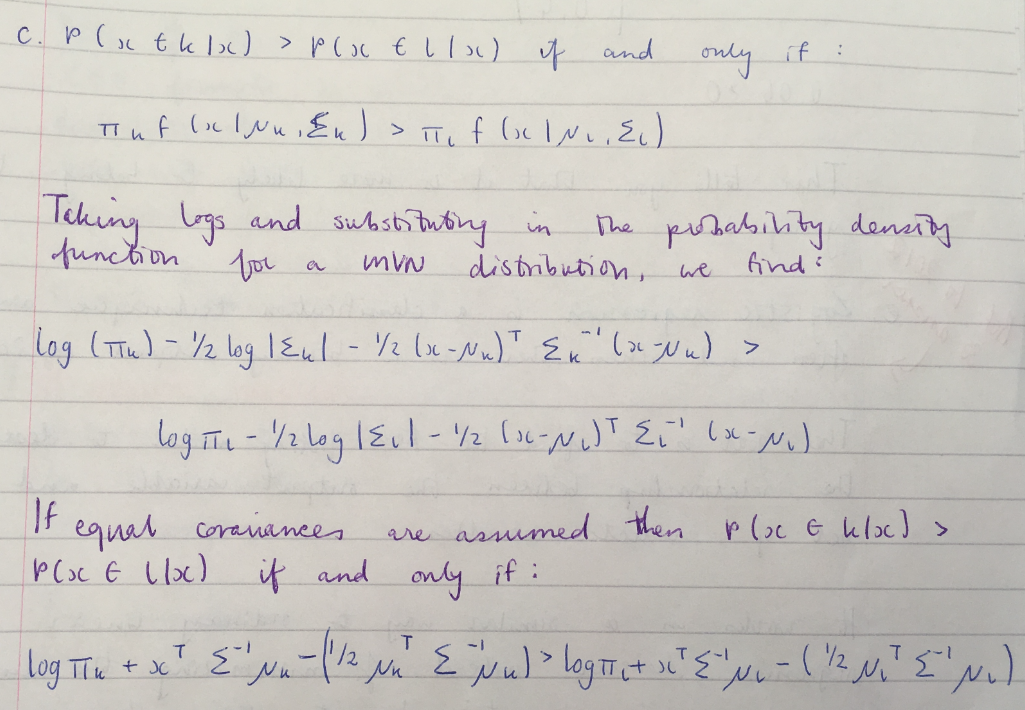 c. P(x ∈ k|x) > P(x ∈ l|x) if and only if :
π_k f(x|μ_k, Σ_k) > π_l f(x|μ_l, Σ_l)
Taking logs and substituting in the probability density
function for a MVN distribution, we find:
log(π_k) - 1/2 log|Σ_k| - 1/2 (x-μ_k)^T Σ_k^-1 (x-μ_k) >
log π_l - 1/2 log|Σ_l| - 1/2 (x-μ_l)^T Σ_l^-1 (x-μ_l)
If equal covariances are assumed then P(x ∈ k|x) >
P(x ∈ l|x) if and only if :
log π_k + x^T Σ^-1 μ_k - (1/2 μ_k^T Σ^-1 μ_k) > log π_l + x^T Σ^-1 μ_l - (1/2 μ_l^T Σ^-1 μ_l)